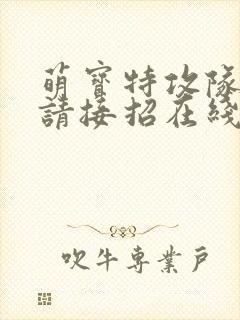 萌寶特攻隊
請接招在綫
吹牛專業戶